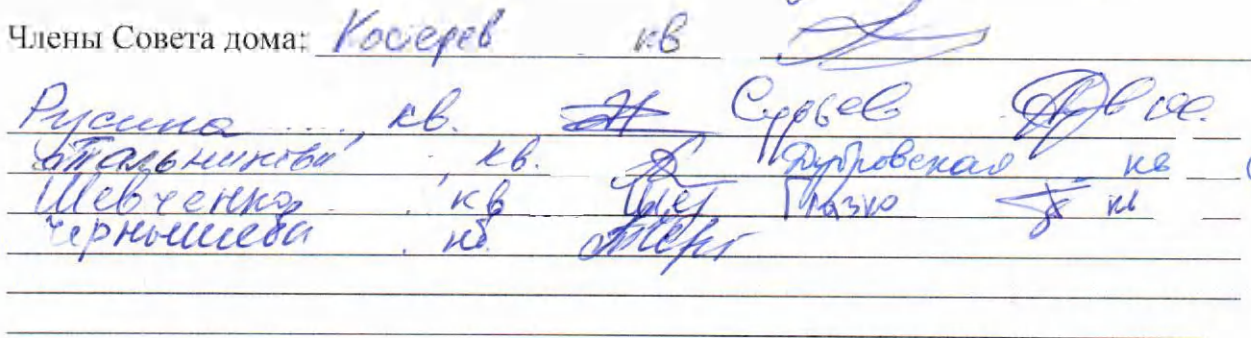 Члены Совета дома: Костерев кв
Русина, кв. Сурьев кв
Стальникова кв. Дубровская кв
Шевченко, кв Глазко кв
Чернышева кв.